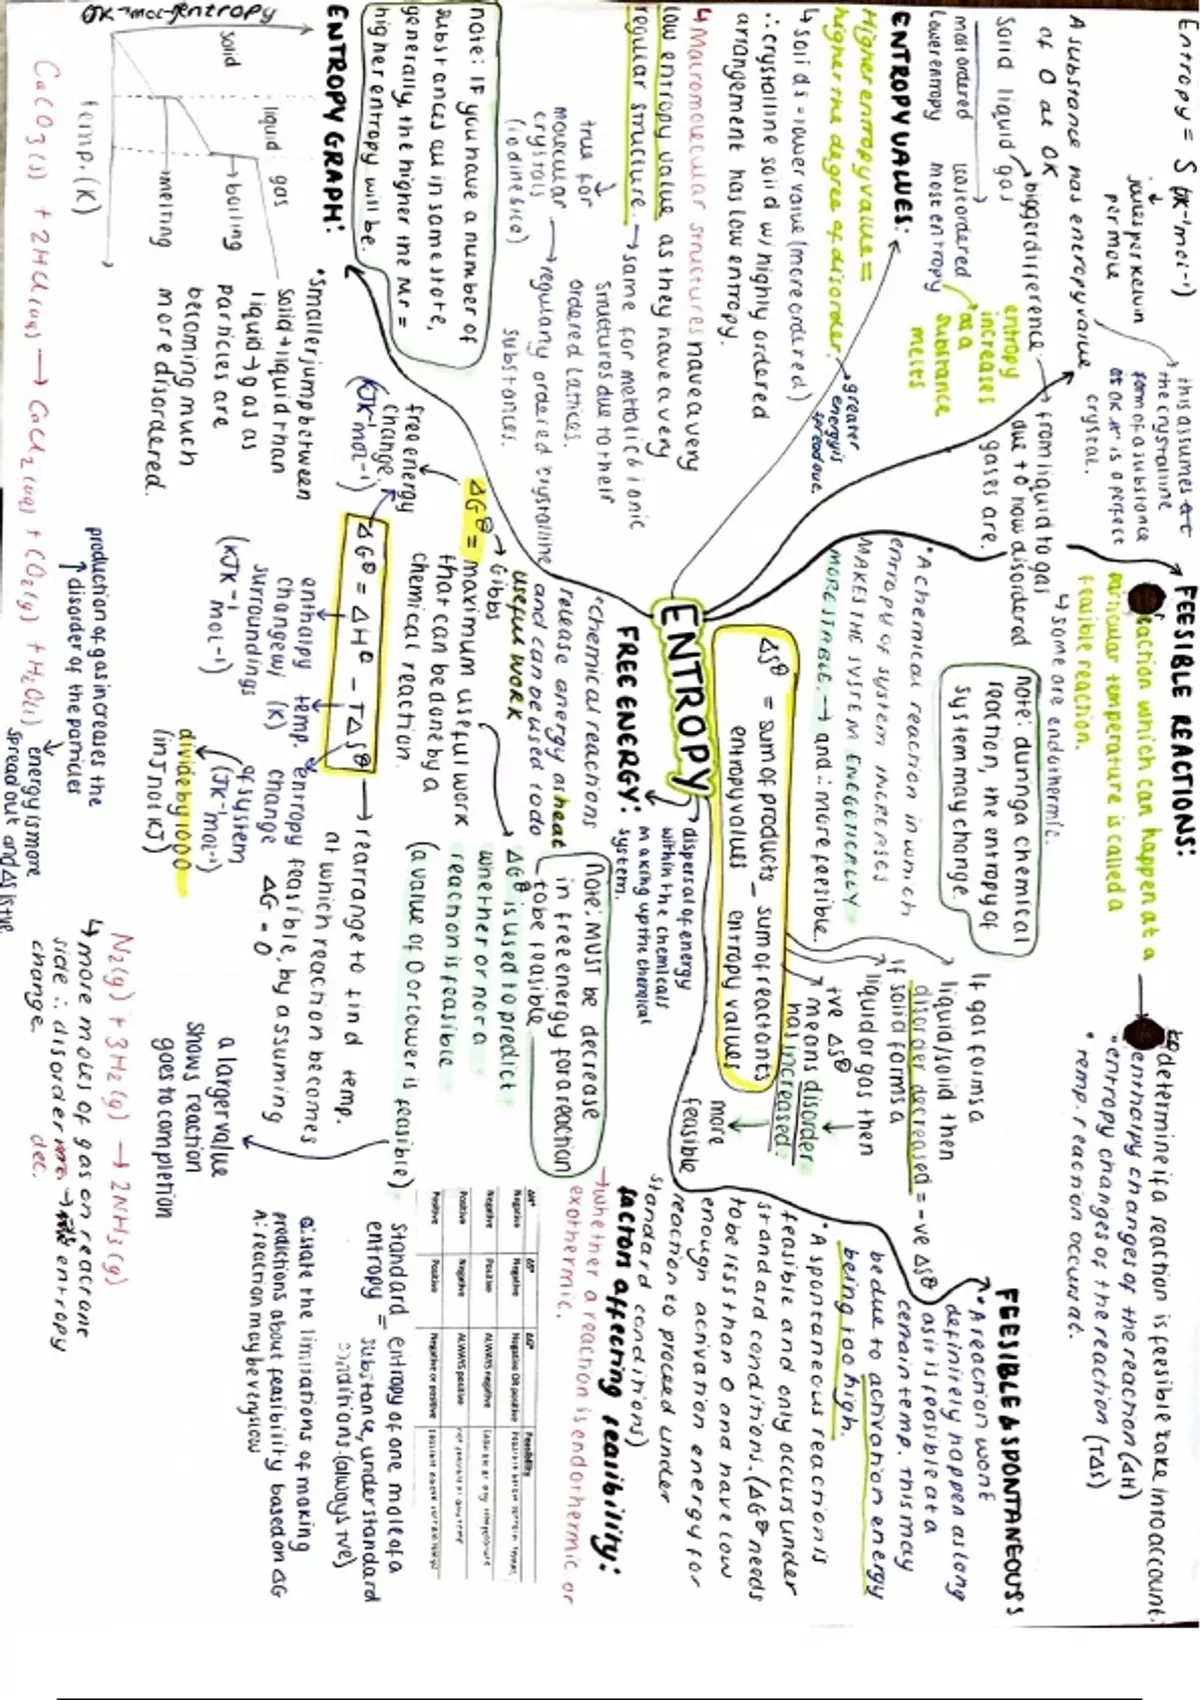 Entropy = S (JK⁻¹mol⁻¹)
joules per kelvin
per mole
this assumes
the crystalline
form of a substance
at 0K it is a perfect
crystal.
A substance has entropy value
of 0 at 0K
Solid liquid gas
most ordered
lower entropy
least ordered
most entropy
bigger difference
from liquid to gas
due to how disordered
gases are.
entropy
increases
as a
substance
melts
ENTROPY VALUES:
Higher entropy value =
higher the degree of disorder.
greater
energy is
spread out.
↳ solids = lower value (more ordered)
∴ crystalline solid w/ highly ordered
arrangement has low entropy.
↳ Macromolecular structures have a very
low entropy value as they have a very
regular structure. → same for metallic & ionic
structures due to their
ordered lattices.
true for
molecular
crystals
(iodine & ice)
→ regularly ordered crystalline
substances.
note: IF you have a number of
substances all in same state,
generally, the higher the Mr =
higher entropy will be.
ENTROPY GRAPH:
JK⁻¹mol⁻¹ entropy
solid
liquid
gas
→ boiling
→ melting
temp. (K)
• Smaller jump between
solid → liquid than
liquid → gas as
particles are
becoming much
more disordered.
FEESIBLE REACTIONS:
eaction which can happen at a
particular temperature is called a
feasible reaction.
↳ some are endothermic.
note: during a chemical
reaction, the entropy of
system may change.
• A chemical reaction in which
entropy of system INCREASES
MAKES THE SYSTEM ENERGETICALLY
MORE STABLE. → and ∴ more feesible.
to determine if a reaction is feesible take into account:
• enthalpy changes of the reaction (ΔH)
• entropy changes of the reaction (TΔS)
• temp. reaction occurs at.
ΔS⦵ = sum of products − sum of reactants
entropy values entropy values
If gas forms a
liquid/solid then
disorder decreased = -ve ΔS⦵
if solid forms a
liquid or gas then
+ve ΔS⦵
means disorder
has increased.
more
feasible
ENTROPY
→ dispersal of energy
within the chemicals
making up the chemical
system.
FREE ENERGY:
• Chemical reactions
release energy as heat
and can be used to do
useful work
Gibbs
ΔG⦵ = maximum useful work
that can be done by a
chemical reaction.
free energy
change.
(KJK⁻¹mol⁻¹)
ΔG⦵ = ΔH⦵ − TΔS⦵
enthalpy
change w/
surroundings
(KJK⁻¹
mol⁻¹)
temp.
(K)
entropy
change
of system
(JK⁻¹mol⁻¹)
divide by 1000
(in J not KJ)
→ rearrange to find temp.
at which reaction becomes
feasible, by assuming
ΔG = 0
Note: MUST be decrease
in free energy for a reaction
to be feasible
ΔG⦵ is used to predict
whether or not a
reaction is feasible
(a value of 0 or lower is feasible)
a larger value
shows reaction
goes to completion
FEESIBLE & SPONTANEOUS:
• A reaction wont
definitely happen as long
as it is feasible at a
certain temp. This may
be due to activation energy
being too high.
• A spontaneous reaction is
feasible and only occurs under
standard conditions. (ΔG⦵ needs
to be less than 0 and have low
enough activation energy for
reaction to proceed under
standard conditions)
factors affecting feasibility:
→ whether a reaction is endothermic or
exothermic.
ΔH° ΔS° ΔG° Feasibility
Negative Negative Negative OR positive
Negative Positive ALWAYS negative
Positive Negative ALWAYS positive
Positive Positive Negative or positive
standard
entropy =
entropy of one mole of a
substance, under standard
conditions. (always +ve)
Q: state the limitations of making
predictions about feasibility based on ΔG
A: reaction may be very slow
CaCO₃(s) + 2HCl(aq) → CaCl₂(aq) + CO₂(g) + H₂O(l)
production of gas increases the
↑ disorder of the particles
energy is more
spread out and ΔS is +ve.
N₂(g) + 3H₂(g) → 2NH₃(g)
↳ more moles of gas on reactant
side ∴ disorder → entropy
change. dec.